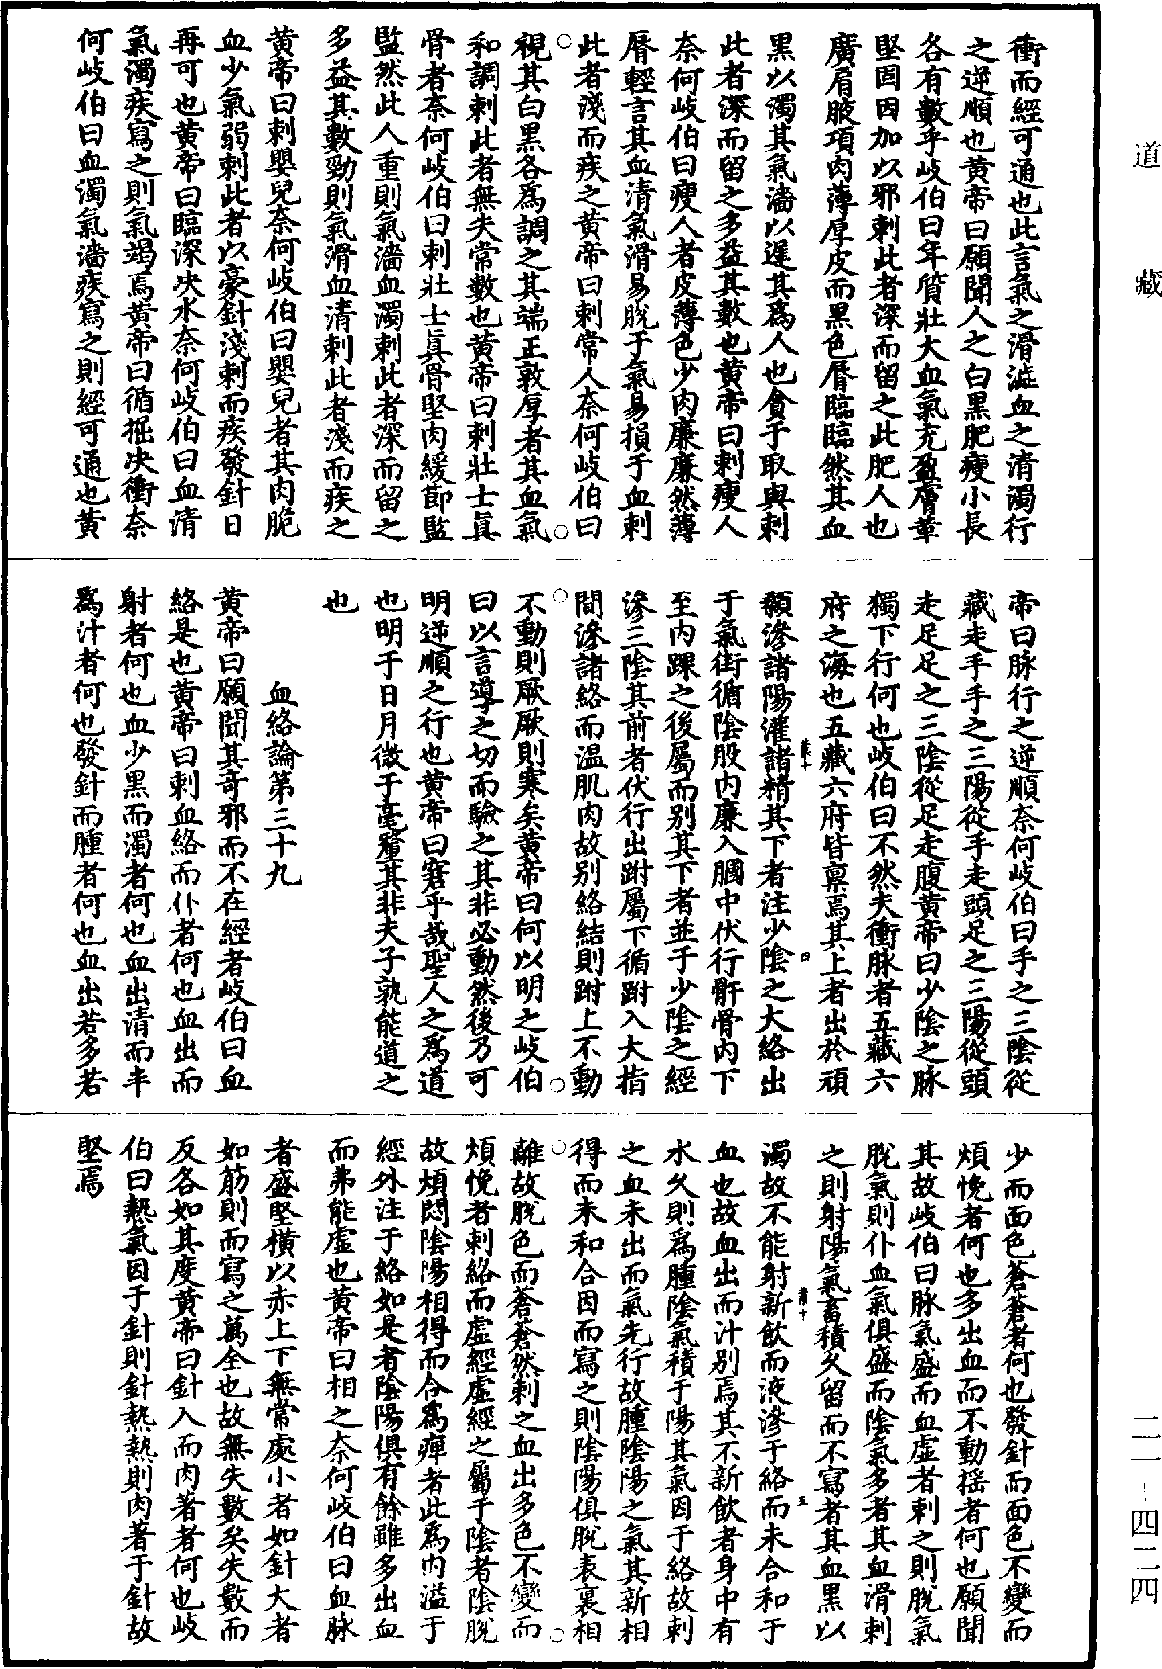 道藏
二一·四二四
衝而經可通也此言氣之滑澁血之清濁行
之逆順也黄帝曰願聞人之白黑肥瘦小長
各有數乎岐伯曰年質壯大血氣充盈膚革
堅固因加以邪刺此者深而留之此肥人也
廣肩腋項肉薄厚皮而黑色脣臨臨然其血
黑以濁其氣濇以遲其爲人也貪于取與刺
此者深而留之多益其數也黄帝曰刺瘦人
奈何岐伯曰瘦人者皮薄色少肉廉廉然薄
脣輕言其血清氣滑易脫于氣易損于血刺
此者淺而疾之黄帝曰刺常人奈何岐伯曰
視其白黑各爲調之其端正敦厚者其血氣
和調刺此者無失常數也黄帝曰刺壯士眞
骨者奈何岐伯曰刺壯士眞骨堅肉緩節監
監然此人重則氣濇血濁刺此者深而留之
多益其數勁則氣滑血清刺此者淺而疾之
黄帝曰刺嬰兒奈何岐伯曰嬰兒者其肉脆
血少氣弱刺此者以豪針淺刺而疾發針日
再可也黄帝曰臨深决水奈何岐伯曰血清
氣濁疾寫之則氣竭焉黄帝曰循掘决衝奈
何岐伯曰血濁氣濇疾寫之則經可通也黄
帝曰脉行之逆順奈何岐伯曰手之三陰從
藏走手手之三陽從手走頭足之三陽從頭
走足足之三陰從足走腹黄帝曰少陰之脉
獨下行何也岐伯曰不然夫衝脉者五藏六
府之海也五藏六府皆稟焉其上者出於頏
顙滲諸陽灌諸精其下者注少陰之大絡出
于氣街循陰股内廉入膕中伏行骭骨内下
至内踝之後屬而别其下者並于少陰之經
滲三陰其前者伏行出跗屬下循跗入大指
間滲諸絡而温肌肉故别絡結則跗上不動
不動則厥厥則寒矣黄帝曰何以明之岐伯
曰以言導之切而驗之其非必動然後乃可
明逆順之行也黄帝曰窘乎哉聖人之爲道
也明于日月微于毫釐其非夫子孰能道之
也
血絡論第三十九
黄帝曰願聞其奇邪而不在經者岐伯曰血
絡是也黄帝曰刺血絡而仆者何也血出而
射者何也血少黑而濁者何也血出清而半
爲汁者何也發針而腫者何也血出若多若
少而面色蒼蒼者何也發針而面色不變而
煩悗者何也多出血而不動摇者何也願聞
其故岐伯曰脉氣盛而血虚者刺之則脫氣
脫氣則仆血氣俱盛而陰氣多者其血滑刺
之則射陽氣畜積久留而不寫者其血黑以
濁故不能射新飲而液滲于絡而未合和于
血也故血出而汁别焉其不新飲者身中有
水久則爲腫陰氣積于陽其氣因于絡故刺
之血未出而氣先行故腫陰陽之氣其新相
得而未和合因而寫之則陰陽俱脫表裏相
離故脫色而蒼蒼然刺之血出多色不變而
煩悗者刺絡而虚經虚經之屬于陰者陰脫
故煩悶陰陽相得而合爲痺者此爲内溢于
經外注于絡如是者陰陽俱有餘雖多出血
而弗能虚也黄帝曰相之奈何岐伯曰血脉
者盛堅横以赤上下無常處小者如針大者
如筋則而寫之萬全也故無失數矣失數而
反各如其度黄帝曰針入而肉著者何也岐
伯曰熱氣因于針則針熱熱則肉著于針故
堅焉